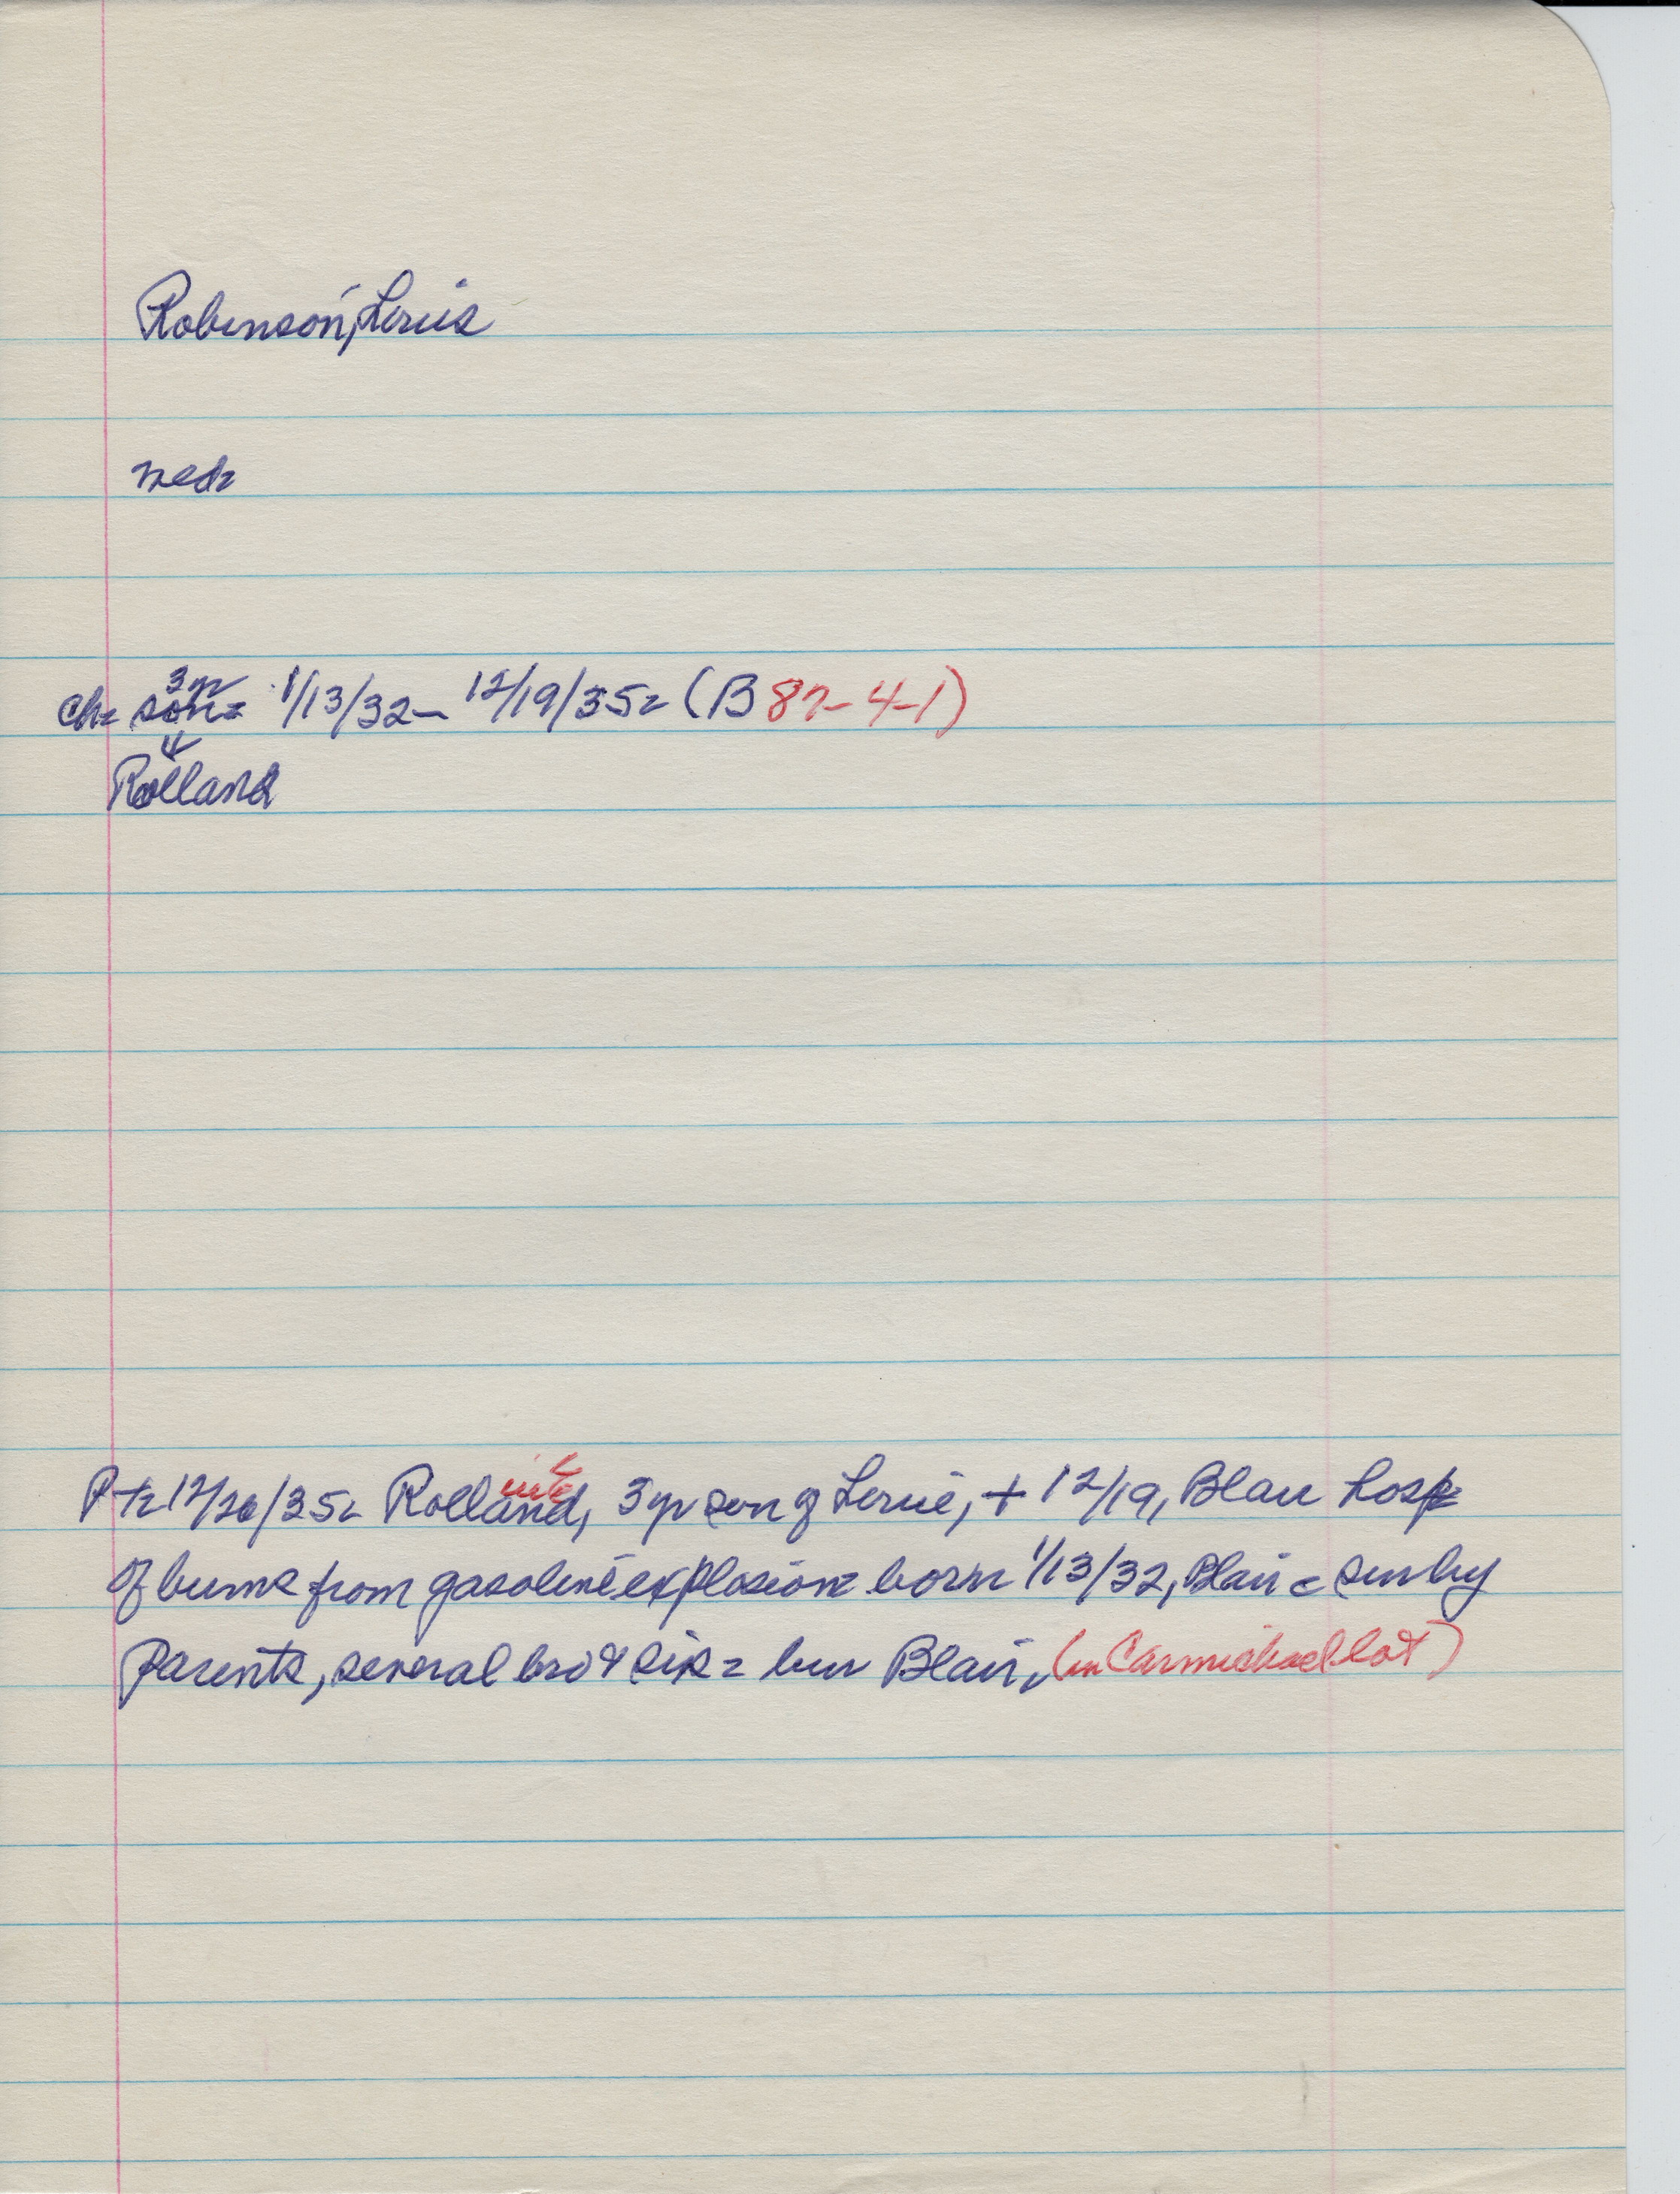 Robinson, Louis
med=
3 yr
ch= son= 1/13/32- 12/19/35= (B 87-4-1)
Rolland
P+= 12/26/35= Rolland, 3 yr son of Louie, + 12/19, Blair hosp=
of burns from gasoline explosion= born 1/13/32, Blair= sur by
parents, several bro & sis= bur Blair, (in Carmichael lot)